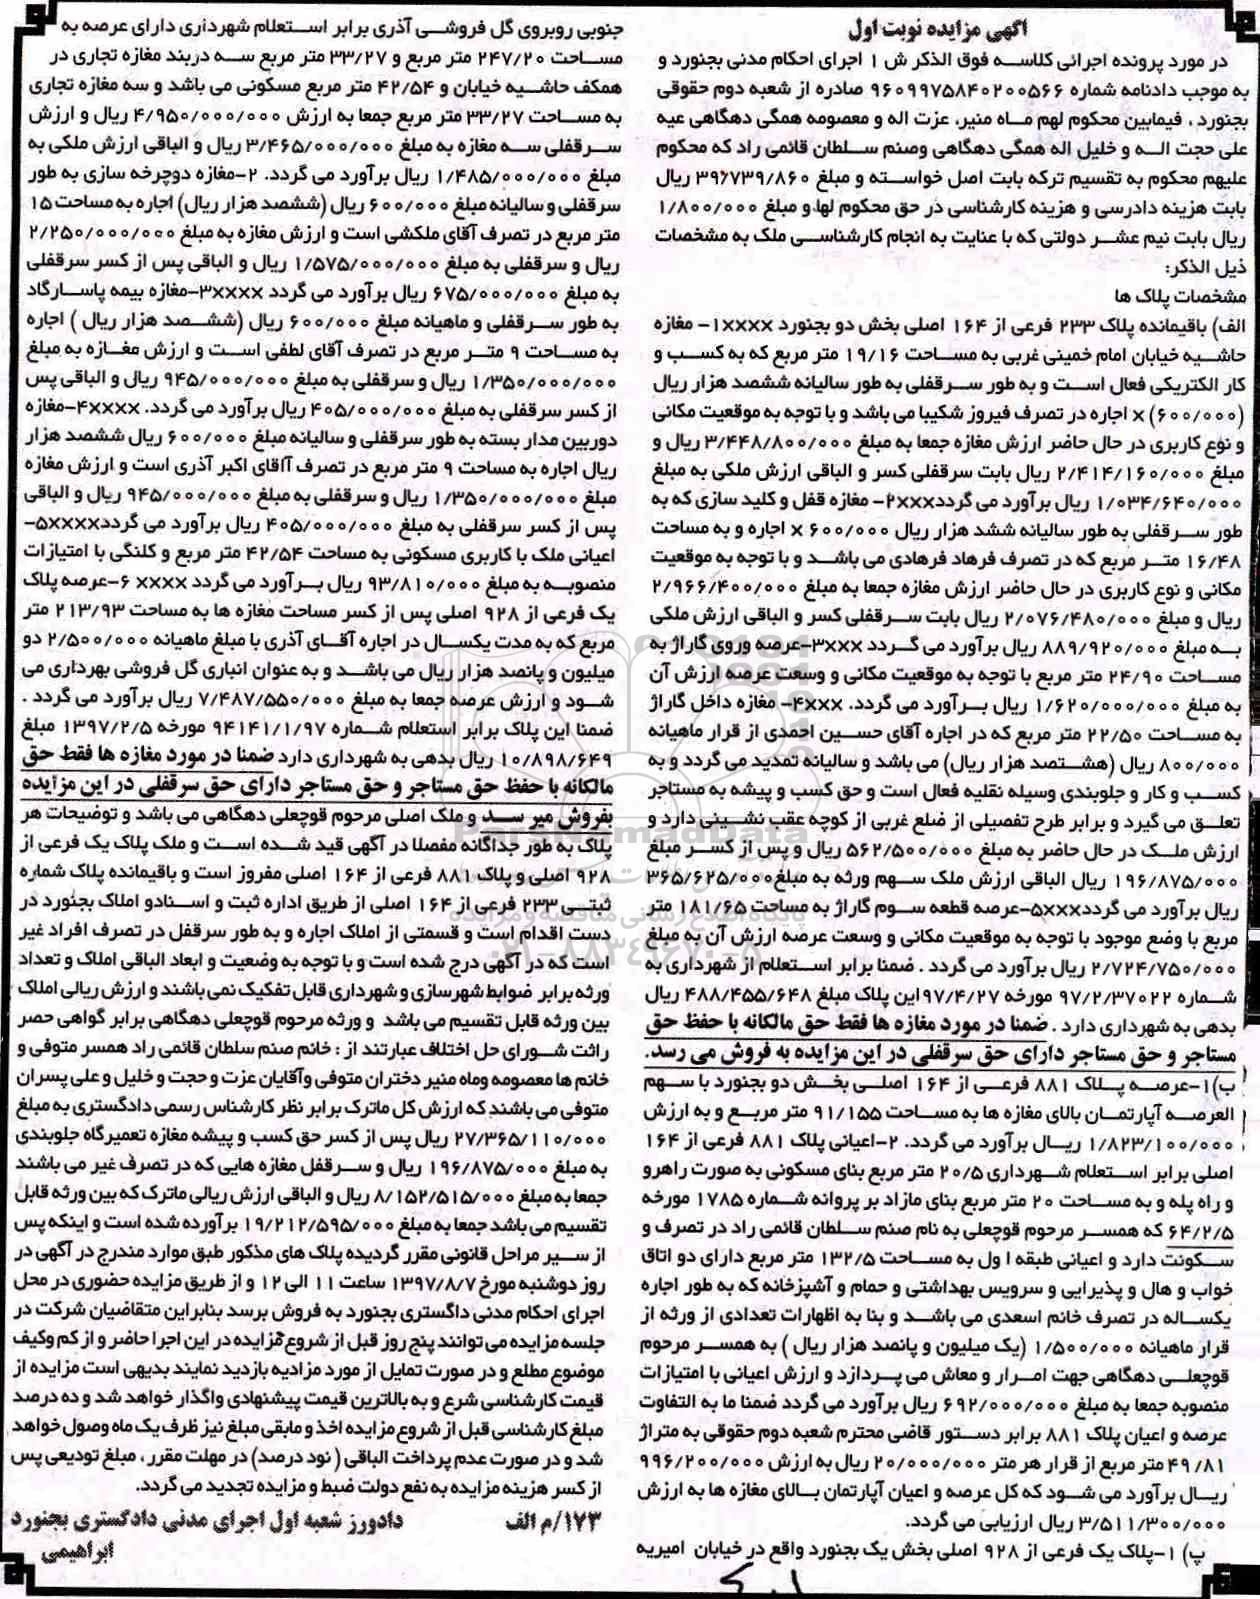 آگهی مزایده نوبت اول
در مورد پرونده اجرائی کلاسه فوق الذکر ش ۱ اجرای احکام مدنی بجنورد و
به موجب دادنامه شماره ۹۶۰۹۹۷۵۸۴۰۲۰۰۵۶۶ صادره از شعبه دوم حقوقی
بجنورد ، فیمابین محکوم لهم ماه منیر، عزت اله و معصومه همگی دهگاهی عیه
علی حجت اله و خلیل اله همگی دهگاهی وصنم سلطان قائمی راد که محکوم
علیهم محکوم به تقسیم ترکه بابت اصل خواسته و مبلغ ۳۹۶۷۳۹/۸۶۰ ریال
بابت هزینه دادرسی و هزینه کارشناسی در حق محکوم لها و مبلغ ۱/۸۰۰/۰۰۰
ریال بابت نیم عشر دولتی که با عنایت به انجام کارشناسی ملک به مشخصات
ذیل الذکر:
مشخصات پلاک ها
الف) باقیمانده پلاک ۲۳۳ فرعی از ۱۶۴ اصلی بخش دو بجنورد ۱xxxx- مغازه
حاشیه خیابان امام خمینی غربی به مساحت ۱۹/۱۶ متر مربع که به کسب و
کار الکتریکی فعال است و به طور سرقفلی به طور سالیانه ششصد هزار ریال
(۶۰۰/۰۰۰) x اجاره در تصرف فیروز شکیبا می باشد و با توجه به موقعیت مکانی
و نوع کاربری در حال حاضر ارزش مغازه جمعا به مبلغ ۳/۴۴۸/۸۰۰/۰۰۰ ریال و
مبلغ ۲/۴۱۴/۱۶۰/۰۰۰ ریال بابت سرقفلی کسر و الباقی ارزش ملکی به مبلغ
۱/۰۳۴/۶۴۰/۰۰۰ ریال برآورد می گردد۲xxx- مغازه قفل و کلید سازی که به
طور سرقفلی به طور سالیانه ششد هزار ریال ۶۰۰/۰۰۰ x اجاره و به مساحت
۱۶/۴۸ متر مربع که در تصرف فرهاد فرهادی می باشد و با توجه به موقعیت
مکانی و نوع کاربری در حال حاضر ارزش مغازه جمعا به مبلغ ۲/۹۶۶/۴۰۰/۰۰۰
ریال و مبلغ ۲/۰۷۶/۴۸۰/۰۰۰ ریال بابت سرقفلی کسر و الباقی ارزش ملکی
به مبلغ ۸۸۹/۹۲۰/۰۰۰ ریال برآورد می گردد ۳xxx-عرصه وروی گاراژ به
مساحت ۲۴/۹۰ متر مربع با توجه به موقعیت مکانی و وسعت عرصه ارزش آن
به مبلغ ۱/۶۲۰/۰۰۰/۰۰۰ ریال برآورد می گردد. ۴xxx- مغازه داخل گاراژ
به مساحت ۲۲/۵۰ متر مربع که در اجاره آقای حسین احمدی از قرار ماهیانه
۸۰۰/۰۰۰ ریال (هشتصد هزار ریال) می باشد و سالیانه تمدید می گردد و به
کسب و کار و جلوبندی وسیله نقلیه فعال است و حق کسب و پیشه به مستاجر
تعلق می گیرد و برابر طرح تفصیلی از ضلع غربی از کوچه عقب نشینی دارد و
ارزش ملک در حال حاضر به مبلغ ۵۶۲/۵۰۰/۰۰۰ ریال و پس از کسر مبلغ
۱۹۶/۸۷۵/۰۰۰ ریال الباقی ارزش ملک سهم ورثه به مبلغ ۳۶۵/۶۲۵/۰۰۰
ریال برآورد می گردد۵xxx-عرصه قطعه سوم گاراژ به مساحت ۱۸۱/۶۵ متر
مربع با وضع موجود با توجه به موقعیت مکانی و وسعت عرصه ارزش آن به مبلغ
۲/۷۲۴/۷۵۰/۰۰۰ ریال برآورد می گردد . ضمنا برابر استعلام از شهرداری به
شماره ۹۷/۲/۳۷۰۲۲ مورخه ۹۷/۴/۲۷ این پلاک مبلغ ۴۸۸/۴۵۵/۶۴۸ ریال
بدهی به شهرداری دارد . ضمنا در مورد مغازه ها فقط حق مالکانه با حفظ حق
مستاجر و حق مستاجر دارای حق سرقفلی در این مزایده به فروش می رسد.
ب)۱-عرصه پلاک ۸۸۱ فرعی از ۱۶۴ اصلی بخش دو بجنورد با سهم
العرصه آپارتمان بالای مغازه ها به مساحت ۹۱/۱۵۵ متر مربع و به ارزش
۱/۸۲۳/۱۰۰/۰۰۰ ریال برآورد می گردد. ۲-اعیانی پلاک ۸۸۱ فرعی از ۱۶۴
اصلی برابر استعلام شهرداری ۲۰/۵ متر مربع بنای مسکونی به صورت راهرو
و راه پله و به مساحت ۲۰ متر مربع بنای مازاد بر پروانه شماره ۱۷۸۵ مورخه
۶۴/۲/۵ که همسر مرحوم قوچعلی به نام صنم سلطان قائمی راد در تصرف و
سکونت دارد و اعیانی طبقه ا ول به مساحت ۱۳۲/۵ متر مربع دارای دو اتاق
خواب و هال و پذیرایی و سرویس بهداشتی و حمام و آشپزخانه که به طور اجاره
یکساله در تصرف خانم اسعدی می باشد و بنا به اظهارات تعدادی از ورثه از
قرار ماهیانه ۱/۵۰۰/۰۰۰ (یک میلیون و پانصد هزار ریال ) به همسر مرحوم
قوچعلی دهگاهی جهت امرار و معاش می پردازد و ارزش اعیانی با امتیازات
منصوبه جمعا به مبلغ ۶۹۲/۰۰۰/۰۰۰ ریال برآورد می گردد ضمنا ما به التفاوت
عرصه و اعیان پلاک ۸۸۱ برابر دستور قاضی محترم شعبه دوم حقوقی به متراژ
۴۹/۸۱ متر مربع از قرار هر متر ۲۰/۰۰۰/۰۰۰ ریال به ارزش ۹۹۶/۲۰۰/۰۰۰
ریال برآورد می شود که کل عرصه و اعیان آپارتمان بالای مغازه ها به ارزش
۳/۵۱۱/۳۰۰/۰۰۰ ریال ارزیابی می گردد.
پ) ۱-پلاک یک فرعی از ۹۲۸ اصلی بخش یک بجنورد واقع در خیابان امیریه
جنوبی روبروی گل فروشی آذری برابر استعلام شهرداری دارای عرصه به
مساحت ۲۴۷/۲۰ متر مربع و ۳۳/۲۷ متر مربع سه دربند مغازه تجاری در
همکف حاشیه خیابان و ۴۲/۵۴ متر مربع مسکونی می باشد و سه مغازه تجاری
به مساحت ۳۳/۲۷ متر مربع جمعا به ارزش ۴/۹۵۰/۰۰۰/۰۰۰ ریال و ارزش
سرقفلی سه مغازه به مبلغ ۳/۴۶۵/۰۰۰/۰۰۰ ریال و الباقی ارزش ملکی به
مبلغ ۱/۴۸۵/۰۰۰/۰۰۰ ریال برآورد می گردد. ۲-مغازه دوچرخه سازی به طور
سرقفلی و سالیانه مبلغ ۶۰۰/۰۰۰ ریال (ششصد هزار ریال) اجاره به مساحت ۱۵
متر مربع در تصرف آقای ملکشی است و ارزش مغازه به مبلغ ۲/۲۵۰/۰۰۰/۰۰۰
ریال و سرقفلی به مبلغ ۱/۵۷۵/۰۰۰/۰۰۰ ریال و الباقی پس از کسر سرقفلی
به مبلغ ۶۷۵/۰۰۰/۰۰۰ ریال برآورد می گردد ۳xxxx-مغازه بیمه پاسارگاد
به طور سرقفلی و ماهیانه مبلغ ۶۰۰/۰۰۰ ریال (ششصد هزار ریال ) اجاره
به مساحت ۹ متر مربع در تصرف آقای لطفی است و ارزش مغازه به مبلغ
۱/۳۵۰/۰۰۰/۰۰۰ ریال و سرقفلی به مبلغ ۹۴۵/۰۰۰/۰۰۰ ریال و الباقی پس
از کسر سرقفلی به مبلغ ۴۰۵/۰۰۰/۰۰۰ ریال برآورد می گردد. ۴xxxx-مغازه
دوربین مدار بسته به طور سرقفلی و سالیانه مبلغ ۶۰۰/۰۰۰ ریال ششصد هزار
ریال اجاره به مساحت ۹ متر مربع در تصرف آاقای اکبر آذری است و ارزش مغازه
مبلغ ۱/۳۵۰/۰۰۰/۰۰۰ ریال و سرقفلی به مبلغ ۹۴۵/۰۰۰/۰۰۰ ریال و الباقی
پس از کسر سرقفلی به مبلغ ۴۰۵/۰۰۰/۰۰۰ ریال برآورد می گردد۵xxxx-
اعیانی ملک با کاربری مسکونی به مساحت ۴۲/۵۴ متر مربع و کلنگی با امتیازات
منصوبه به مبلغ ۹۳/۸۱۰/۰۰۰ ریال برآورد می گردد xxxx ۶-عرصه پلاک
یک فرعی از ۹۲۸ اصلی پس از کسر مساحت مغازه ها به مساحت ۲۱۳/۹۳ متر
مربع که به مدت یکسال در اجاره آقای آذری با مبلغ ماهیانه ۲/۵۰۰/۰۰۰ دو
میلیون و پانصد هزار ریال می باشد و به عنوان انباری گل فروشی بهرداری می
شود و ارزش عرصه جمعا به مبلغ ۷/۴۸۷/۵۵۰/۰۰۰ ریال برآورد می گردد .
ضمنا این پلاک برابر استعلام شماره ۹۴۱۴۱/۱/۹۷ مورخه ۱۳۹۷/۲/۵ مبلغ
۱۰/۸۹۸/۶۴۹ ریال بدهی به شهرداری دارد ضمنا در مورد مغازه ها فقط حق
مالکانه با حفظ حق مستاجر و حق مستاجر دارای حق سرقفلی در این مزایده
بفروش میر سد و ملک اصلی مرحوم قوچعلی دهگاهی می باشد و توضیحات هر
پلاک به طور جداگانه مفصلا در آگهی قید شده است و ملک پلاک یک فرعی از
۹۲۸ اصلی و پلاک ۸۸۱ فرعی از ۱۶۴ اصلی مفروز است و باقیمانده پلاک شماره
ثبتی ۲۳۳ فرعی از ۱۶۴ اصلی از طریق اداره ثبت و اسنادو املاک بجنورد در
دست اقدام است و قسمتی از املاک اجاره و به طور سرقفل در تصرف افراد غیر
است که در آگهی درج شده است و با توجه به وضعیت و ابعاد الباقی املاک و تعداد
ورثه برابر ضوابط شهرسازی و شهرداری قابل تفکیک نمی باشند و ارزش ریالی املاک
بین ورثه قابل تقسیم می باشد و ورثه مرحوم قوچعلی دهگاهی برابر گواهی حصر
راثت شورای حل اختلاف عبارتند از : خانم صنم سلطان قائمی راد همسر متوفی و
خانم ها معصومه وماه منیر دختران متوفی وآقایان عزت و حجت و خلیل و علی پسران
متوفی می باشند که ارزش کل ماترک برابر نظر کارشناس رسمی دادگستری به مبلغ
۲۷/۳۶۵/۱۱۰/۰۰۰ ریال پس از کسر حق کسب و پیشه مغازه تعمیرگاه جلوبندی
به مبلغ ۱۹۶/۸۷۵/۰۰۰ ریال و سرقفل مغازه هایی که در تصرف غیر می باشند
جمعا به مبلغ ۸/۱۵۲/۵۱۵/۰۰۰ ریال و الباقی ارزش ریالی ماترک که بین ورثه قابل
تقسیم می باشد جمعا به مبلغ ۱۹/۲۱۲/۵۹۵/۰۰۰ برآورده شده است و اینکه پس
از سیر مراحل قانونی مقرر گردیده پلاک های مذکور طبق موارد مندرج در آگهی در
روز دوشنبه مورخ ۱۳۹۷/۸/۷ ساعت ۱۱ الی ۱۲ و از طریق مزایده حضوری در محل
اجرای احکام مدنی داگستری بجنورد به فروش برسد بنابراین متقاضیان شرکت در
جلسه مزایده می توانند پنج روز قبل از شروع مزایده در این اجرا حاضر و از کم وکیف
موضوع مطلع و در صورت تمایل از مورد مزادیه بازدید نمایند بدیهی است مزایده از
قیمت کارشناسی شرع و به بالاترین قیمت پیشنهادی واگذار خواهد شد و ده درصد
مبلغ کارشناسی قبل از شروع مزایده اخذ و مابقی مبلغ نیز ظرف یک ماه وصول خواهد
شد و در صورت عدم پرداخت الباقی ( نود درصد) در مهلت مقرر ، مبلغ تودیعی پس
از کسر هزینه مزایده به نفع دولت ضبط و مزایده تجدید می گردد.
۱۷۳/م الف دادورز شعبه اول اجرای مدنی دادگستری بجنورد
ابراهیمی
ParsNamadData
پایگاه اطلاع رسانی مناقصه و مزایده
۰۲۱-۸۸۳۴۹۶۷۰-۵